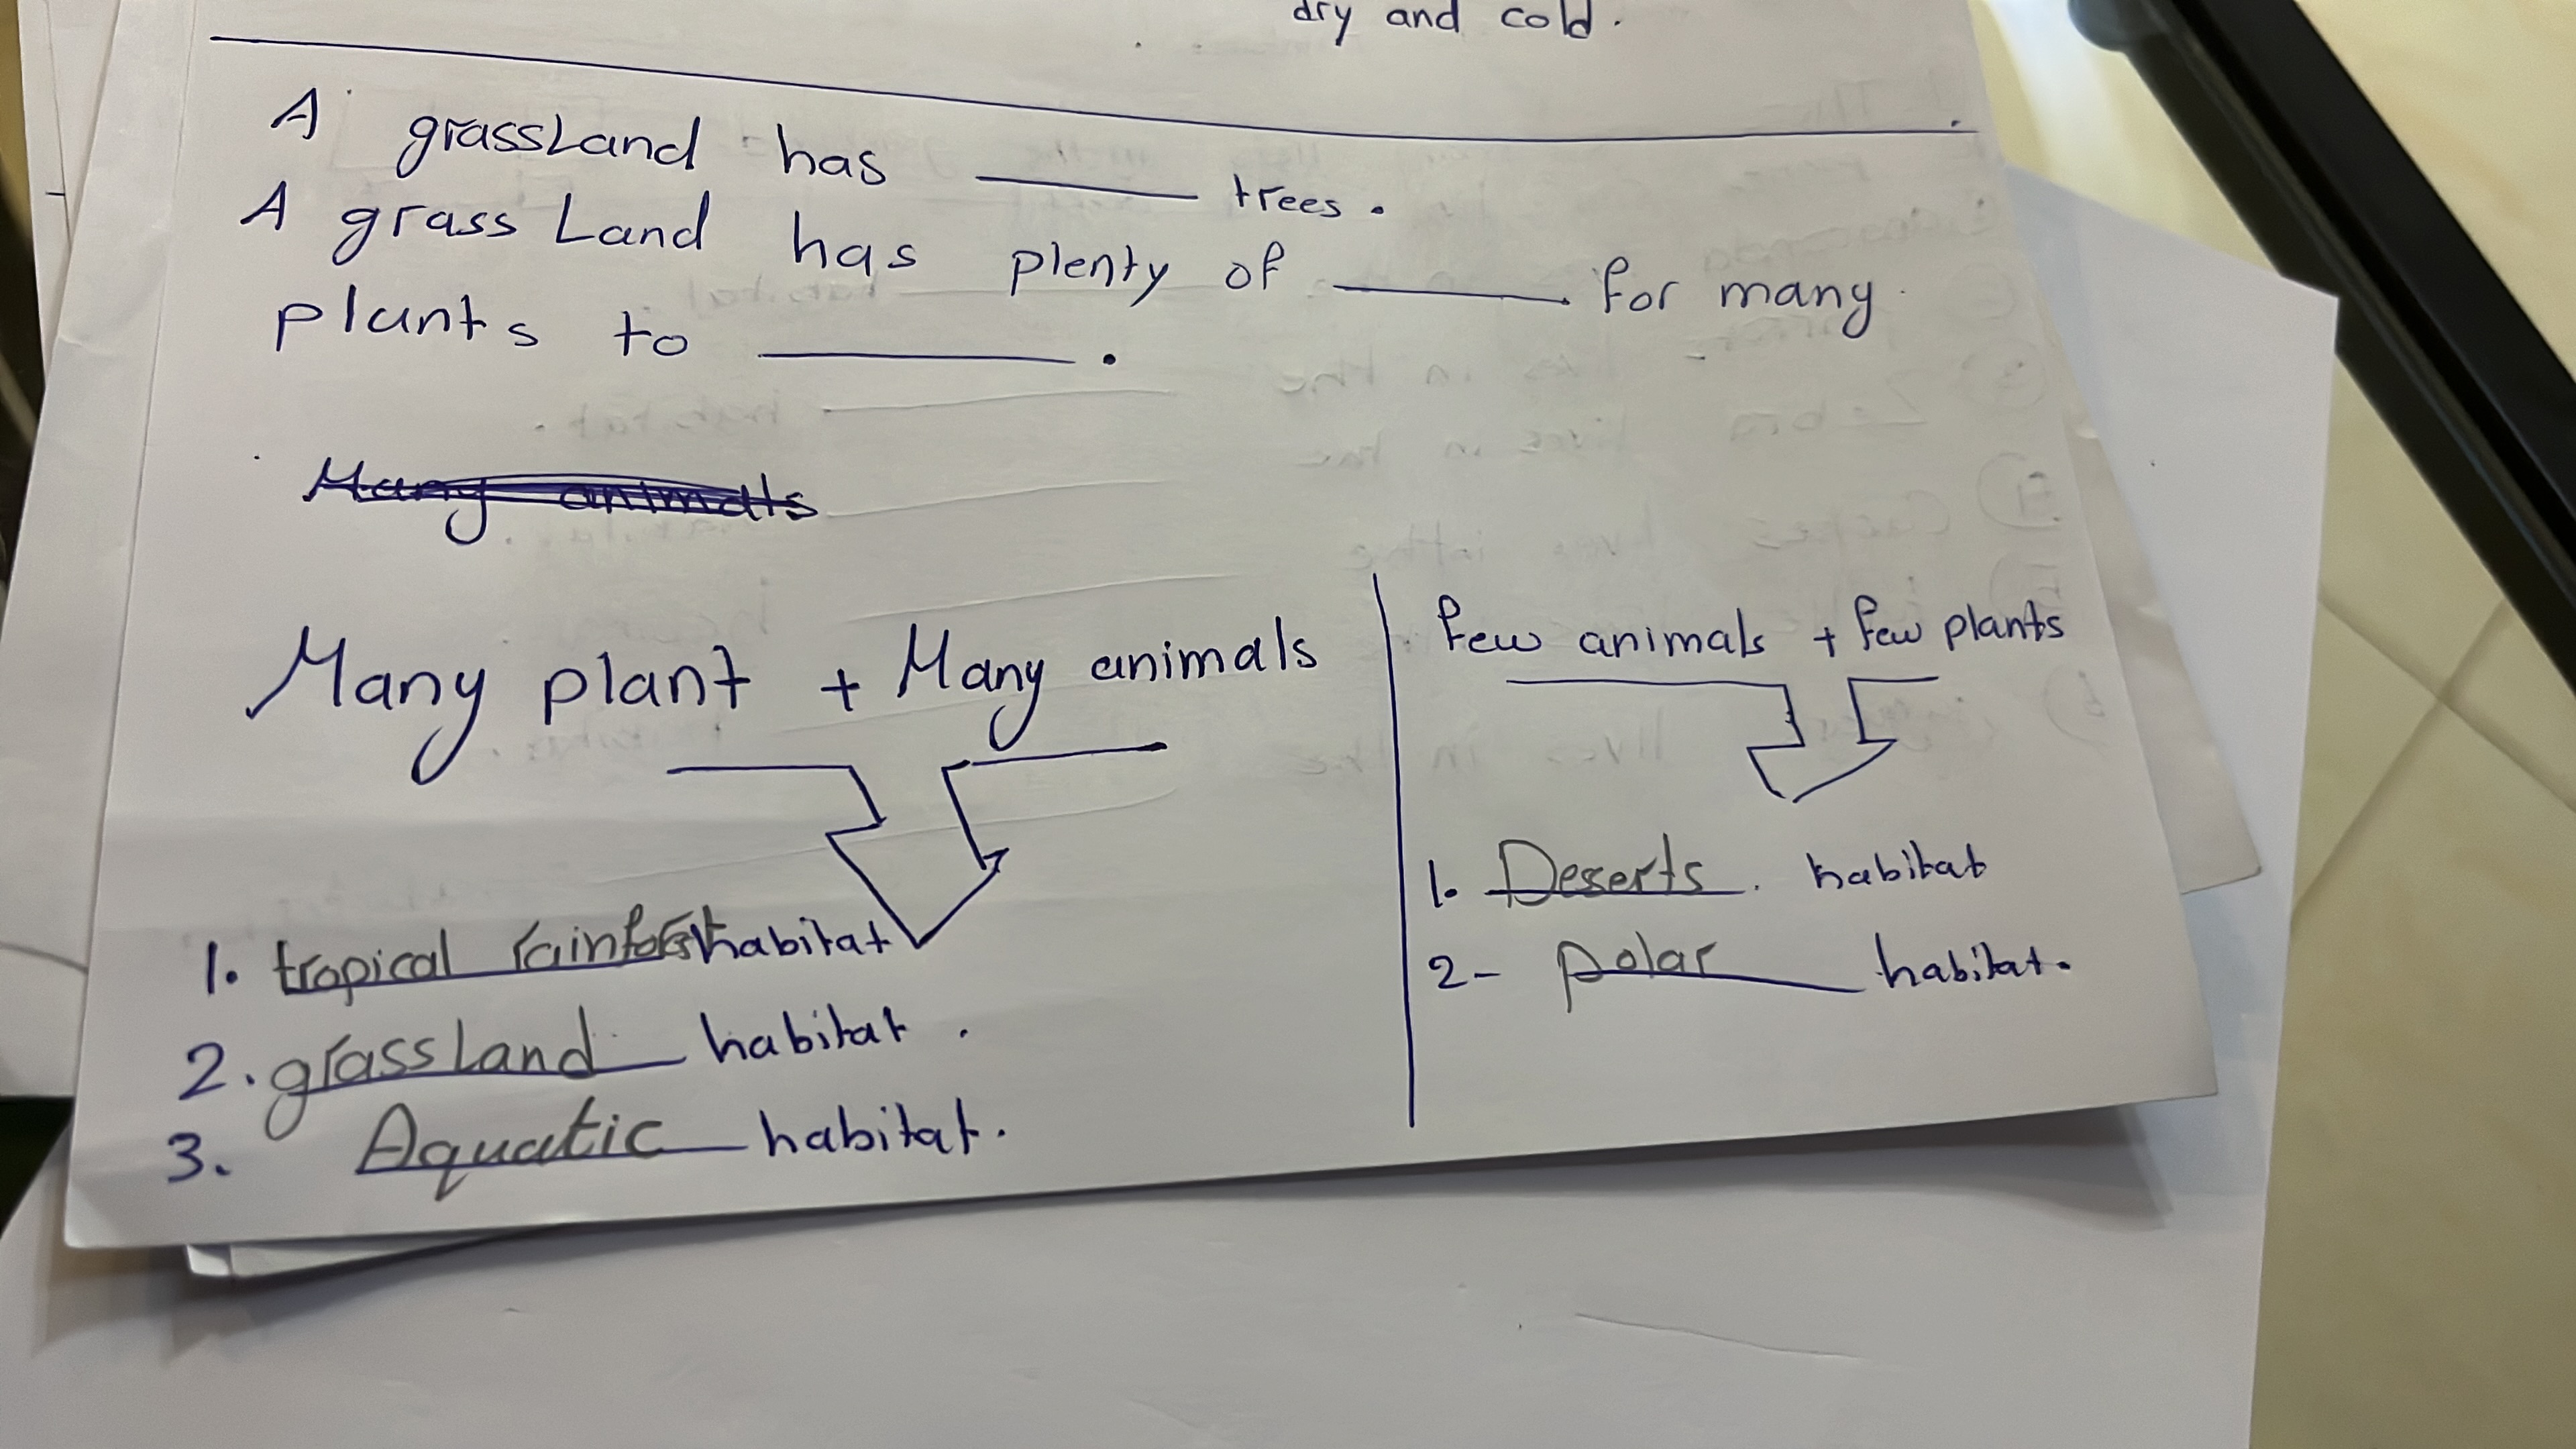 dry and cold.
A grassLand has ______ trees.
A grass Land has plenty of ______ for many
plants to ______.
Many animals
Many plant + Many animals
few animals + few plants
1. tropical rainforst habitat
2. grassLand habitat.
3. Aquatic habitat.
1. Deserts. habitat
2- polar habitat.